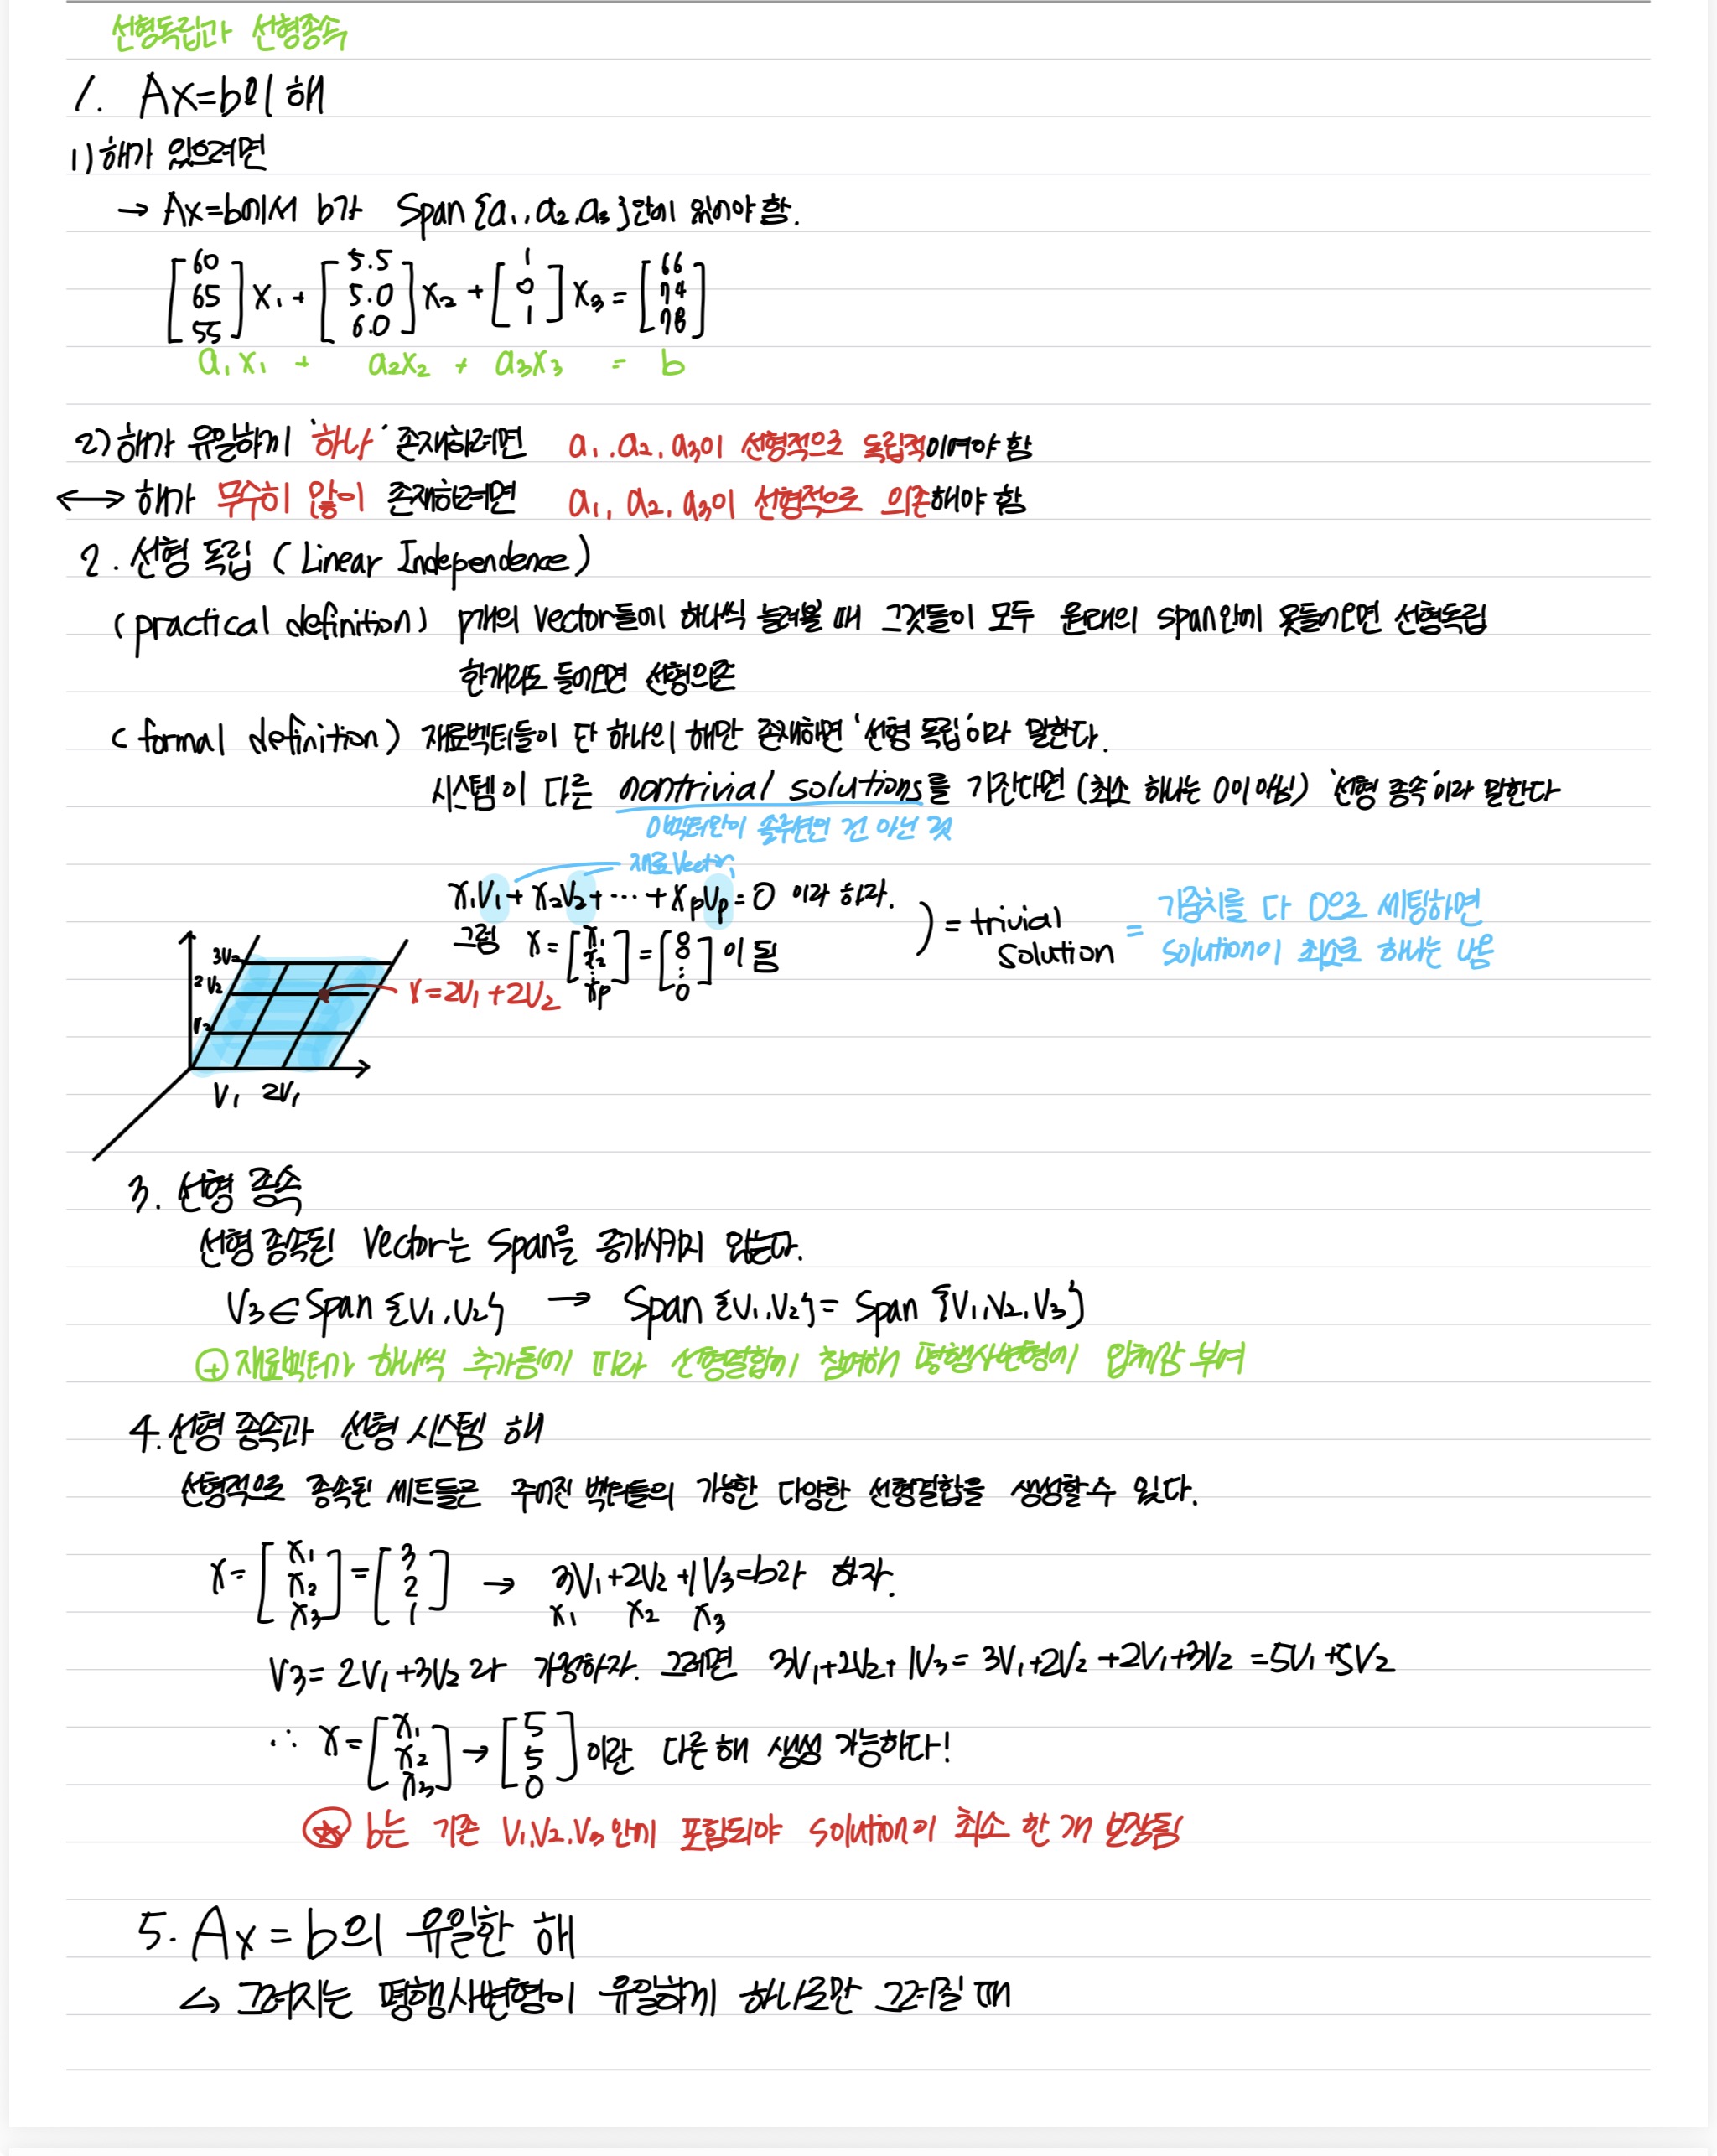 선형독립과 선형종속
1. Ax=b의 해
1) 해가 있으려면
→ Ax=b에서 b가 Span {a₁, a₂, a₃}안에 있어야 함.
[60 65 55] x₁ + [5.5 5.0 6.0] x₂ + [1 0 1] x₃ = [66 74 78]
a₁x₁ + a₂x₂ + a₃x₃ = b
2) 해가 유일하게 '하나' 존재하려면 a₁, a₂, a₃이 선형적으로 독립적이여야 함
↔ 해가 무수히 많이 존재하려면 a₁, a₂, a₃이 선형적으로 의존해야 함
2. 선형 독립 (Linear Independence)
(practical definition) p개의 vector들이 하나씩 늘려볼 때 그것들이 모두 원래의 span안에 못들어오면 선형독립
한개라도 들어오면 선형의존
(formal definition) 재료벡터들이 단 하나의 해만 존재하면 '선형 독립'이라 말한다.
시스템이 다른 nontrivial solutions를 가진다면 (최소 하나는 0이 아님) '선형 종속'이라 말한다
0벡터만이 솔루션인 건 아닌 것
재료 Vector
x₁v₁ + x₂v₂ + ⋯ + xₚvₚ = 0 이라 하자.
그럼 x = [x₁ x₂ ⋮ xₚ] = [0 0 ⋮ 0] 이 됨
) = trivial solution = 기중치를 다 0으로 세팅하면
solution이 최소로 하나는 나옴
3v₂
2v₂
v₂
x = 2v₁ + 2v₂
v₁ 2v₁
3. 선형 종속
선형 종속된 vector는 span을 증가시키지 않는다.
v₃ ∈ Span {v₁, v₂} → Span {v₁, v₂} = Span {v₁, v₂, v₃}
⊕ 재료벡터가 하나씩 추가됨에 따라 선형결합에 참여해 평행사변형에 입체감 부여
4. 선형 종속과 선형 시스템 해
선형적으로 종속된 세트들은 주어진 벡터들의 가능한 다양한 선형결합을 생성할 수 있다.
x = [x₁ x₂ x₃] = [3 2 1] → 3v₁ + 2v₂ + 1v₃ = b라 하자.
x₁ x₂ x₃
v₃ = 2v₁ + 3v₂ 라 가정하자. 그러면 3v₁ + 2v₂ + 1v₃ = 3v₁ + 2v₂ + 2v₁ + 3v₂ = 5v₁ + 5v₂
∴ x = [x₁ x₂ x₃] → [5 5 0] 이란 다른 해 생성 가능하다!
☆ b는 기존 v₁, v₂, v₃ 안에 포함되야 solution이 최소 한 개 보장됨
5. Ax = b의 유일한 해
↳ 그려지는 평행사변형이 유일하게 하나로만 그려질 때